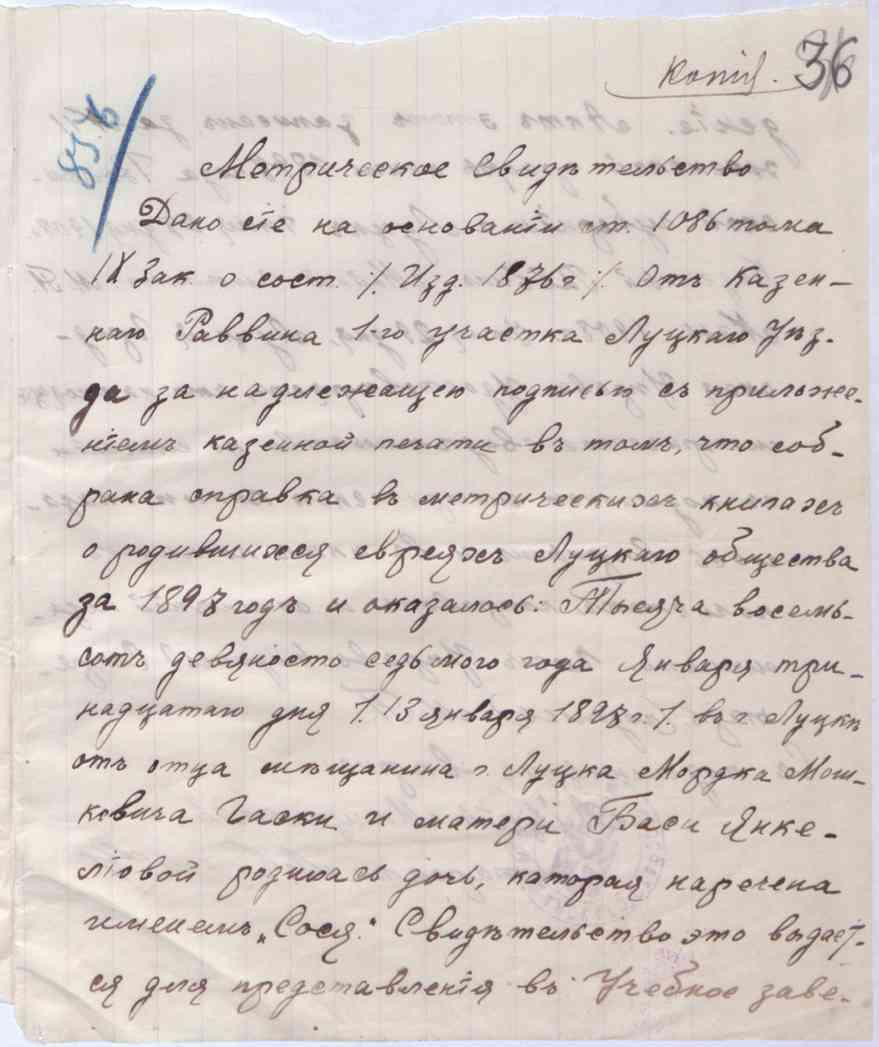 Копія. 36
857 б
Метрическое Свидѣтельство
Дано сіе на основаніи ст. 1086 тома
IX Зак. о сост. ./. Изд. 1876 г ./. Отъ Казен-
наго Раввина 1-го участка Луцкаго Уѣз-
да за надлежащею подписью съ приложе-
ніемъ казенной печати въ томъ, что соб-
рана справка въ метрическихъ книгахъ
о родившихся евреяхъ Луцкаго общества
за 1897 годъ и оказалось: Тысяча восемь-
сотъ девяносто седьмого года Января три-
надцатаго дня ./. 13 января 1897 г ./. въ г. Луцкѣ
отъ отца мѣщанина г. Луцка Мордка Мош-
ковича Гаски и матери Баси Янке-
ліовой родилась дочь, которая наречена
именемъ „Сося." Свидѣтельство это выдает-
ся для представленія въ Учебное заве-